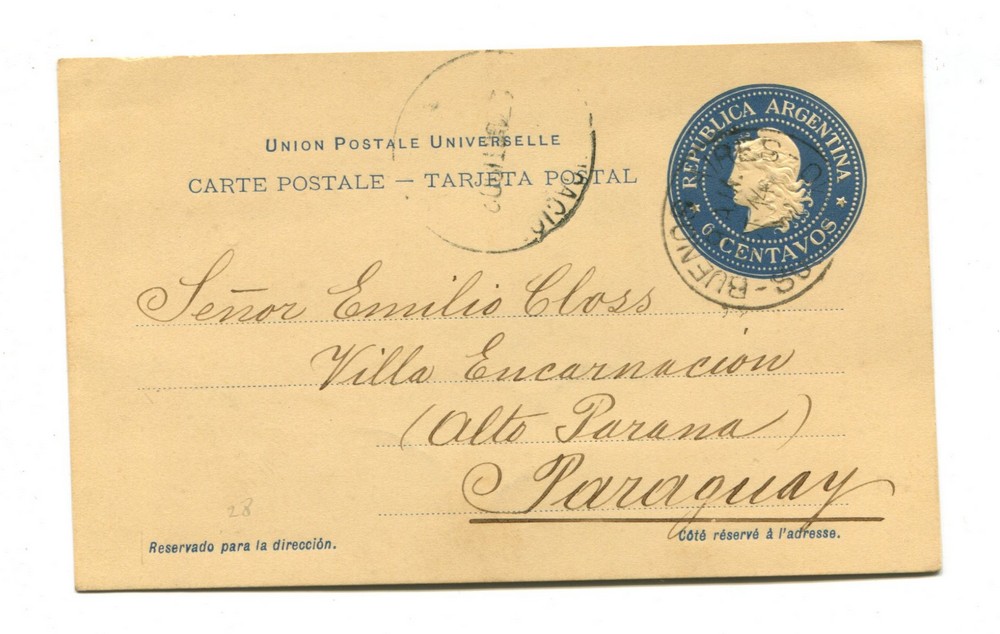 UNION POSTALE UNIVERSELLE
CARTE POSTALE — TARJETA POSTAL
REPUBLICA ARGENTINA
6 CENTAVOS
BUENOS AIRES
Señor Emilio Closs
Villa Encarnación
(Alto Parana)
Paraguay
28
Reservado para la dirección.
Côté réservé à l'adresse.